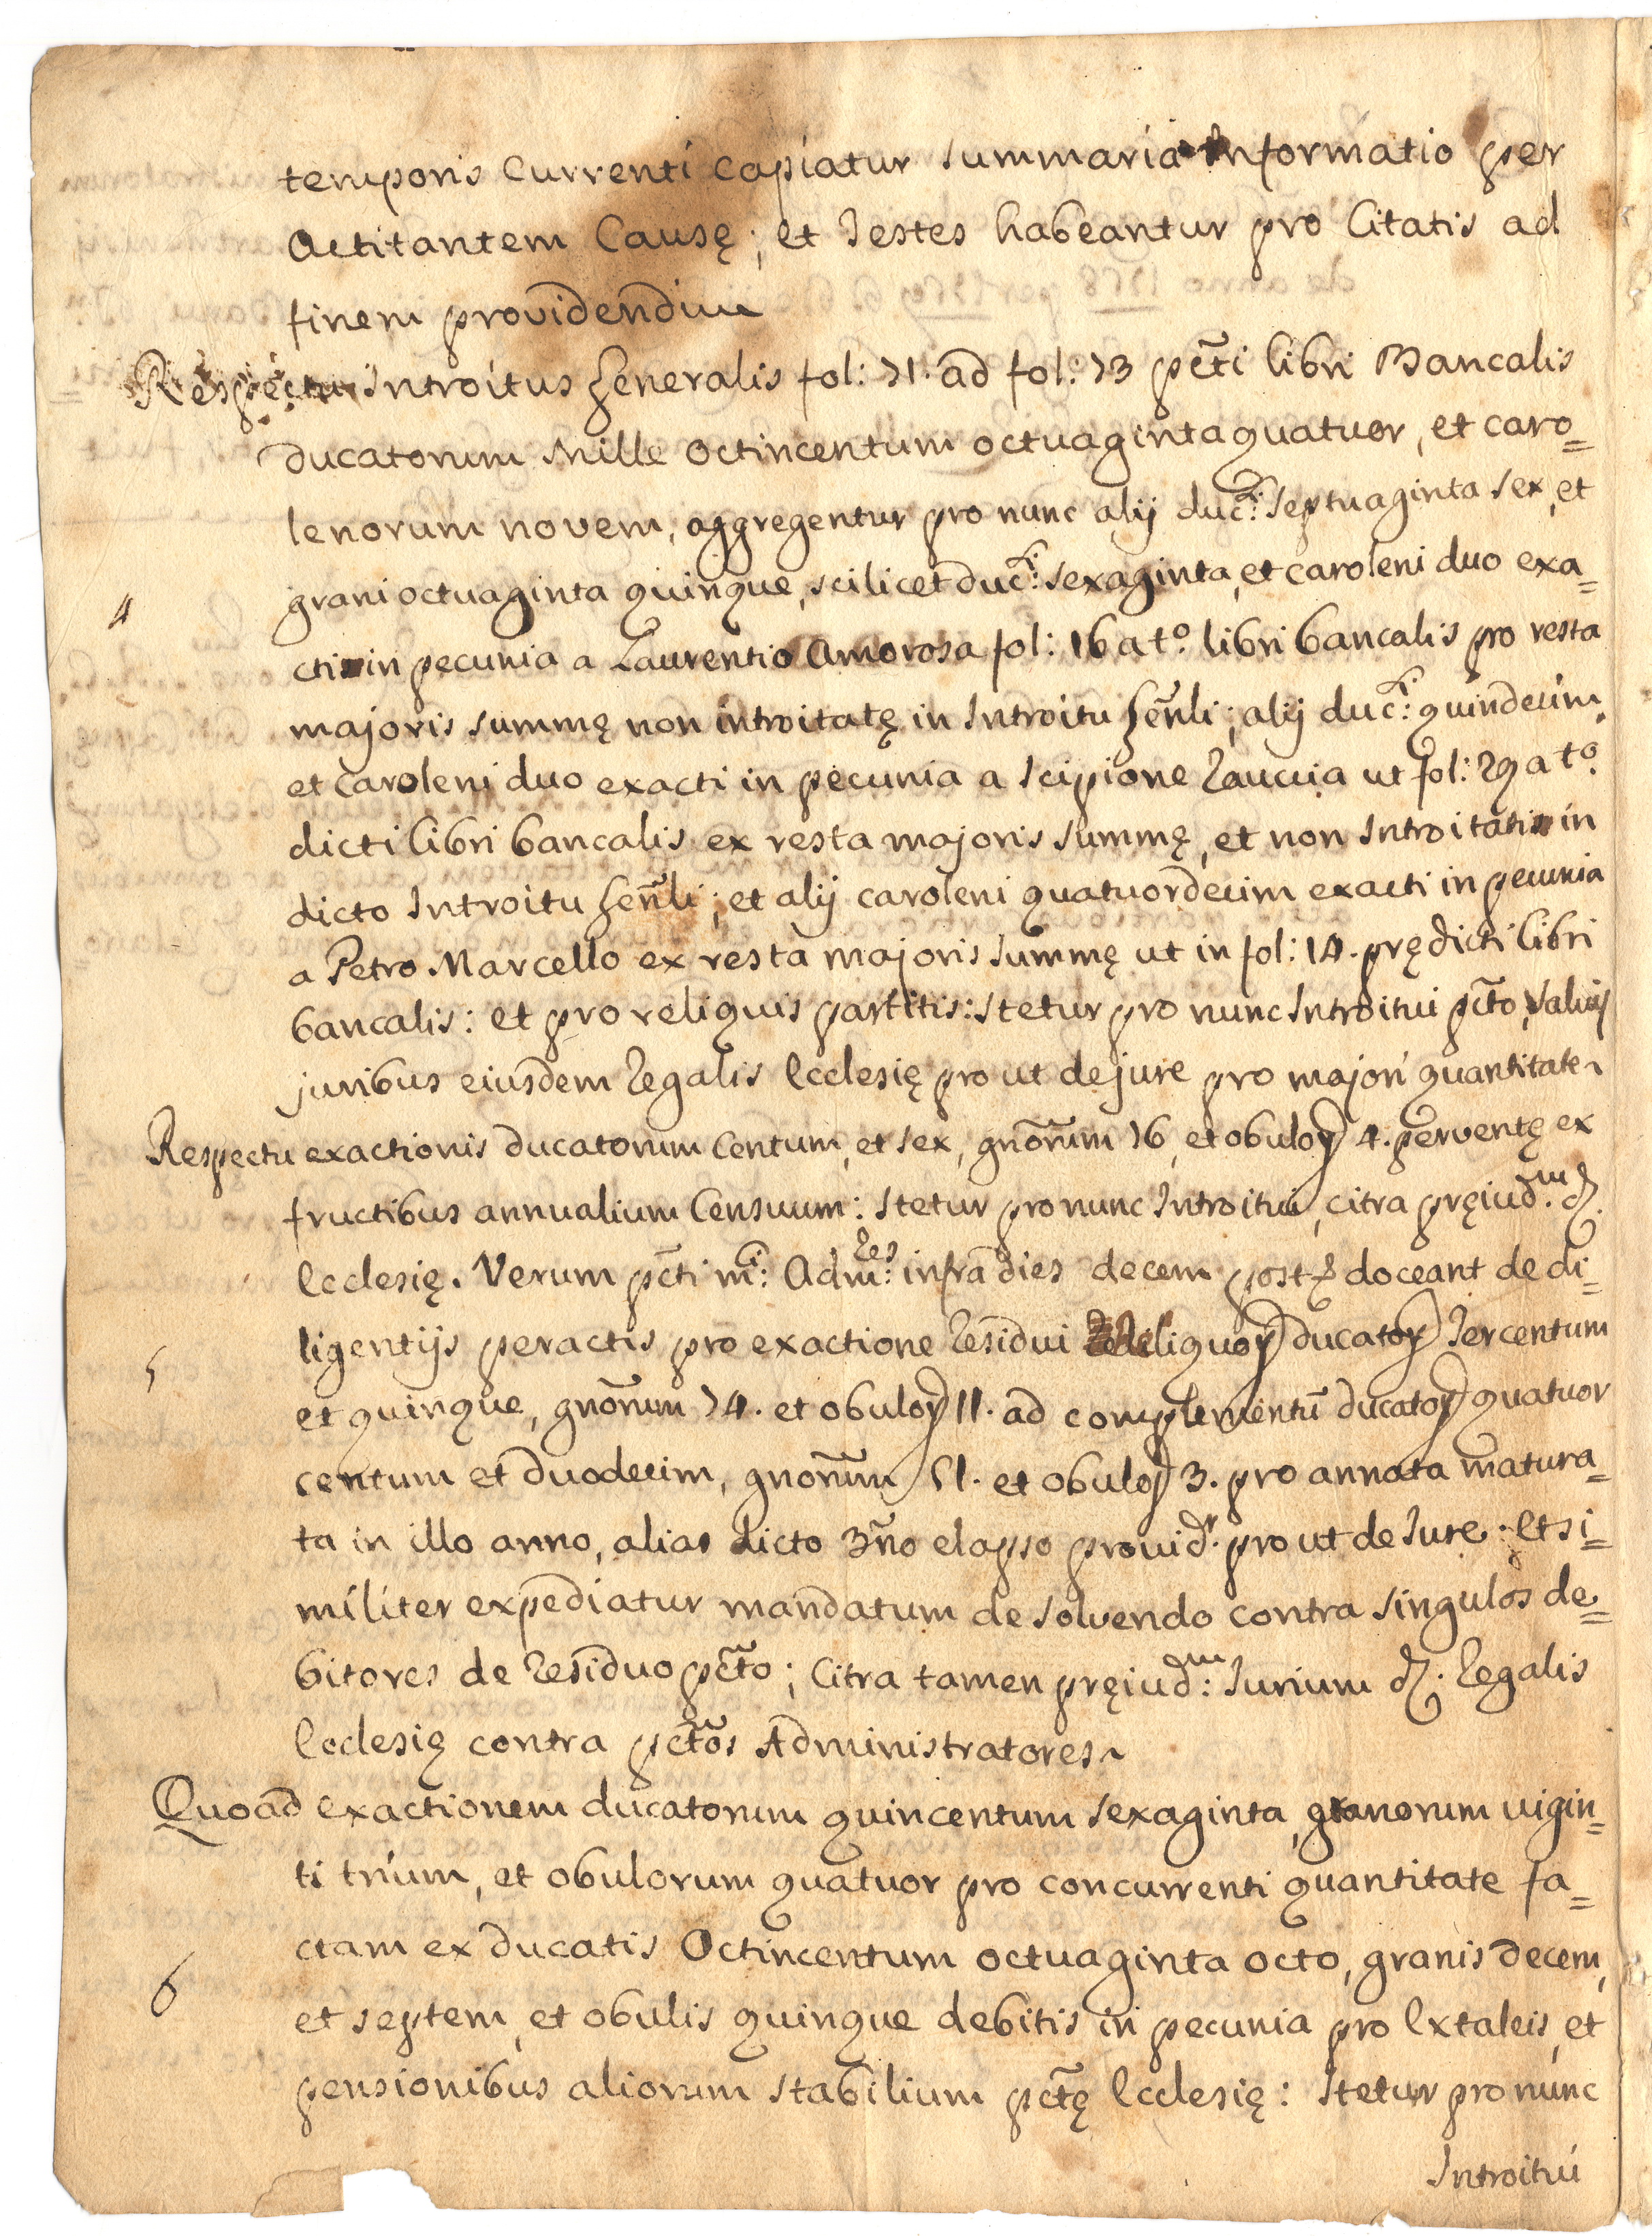 temporis Currenti capiatur summaria informatio per
Actitantem Causę; et Testes habeantur pro Citatis ad
finem providendum
Respectu Introitus Generalis fol: 71. ad fol: 73 pc̃ti libri Bancalis
ducatorum Mille Octincentum octuaginta quatuor, et caro=
lenorum novem, aggregentur pro nunc alij duc:ti septuaginta sex, et
grani octuaginta quinque, scilicet duc:ti sexaginta, et caroleni duo exa=
4
cti in pecunia a Laurentio Amorosa fol: 16 a t.o libri bancalis pro resta
majoris summę non introitatę in Introitu Gen̄li; alij duc:ti quindecim,
et caroleni duo exacti in pecunia a Scipione Rauccia ut fol: 29 a t.o
dicti libri bancalis ex resta majoris summę, et non Introitati in
dicto Introitu Gen̄li; et alij caroleni quatuordecim exacti in pecunia
a Petro Marcello ex resta majoris summę ut in fol: 14. prędicti libri
bancalis: et pro reliquis partitis: stetur pro nunc Introitui pc̃to, salvis
juribus eiusdem Regalis Ecclesię pro ut de jure pro majori quantitate
Respectu exactionis ducatorum Centum, et sex, gnõrum 16, et obuloꝝ 4. perventę ex
fructibus annualium Censuum: stetur pro nunc Introitui, citra pręiud.m d.
Ecclesię. Verum pc̃ti m:ci Adm:res infra dies decem post doceant de di=
ligentijs peractis pro exactione Residui reliquoꝝ ducatoꝝ Tercentum
5
et quinque, gnõrum 74. et obuloꝝ 11. ad complementũ ducatoꝝ quatuor
centum et duodecim, gnõrum 51. et obuloꝝ 3. pro annata matura=
ta in illo anno, alias dicto 3ño elapso provid.r pro ut de Jure: Et si=
militer expediatur mandatum de solvendo contra singulos de=
bitores de Residuo pc̃to; Citra tamen pręiud:m Jurium d. Regalis
Ecclesię contra pc̃tos Administratores
Quoad exactionem ducatorum quincentum sexaginta, granorum vigin=
ti trium, et obulorum quatuor pro concurrenti quantitate fa=
ctam ex ducatis Octincentum octuaginta octo, granis decem,
6
et septem, et obulis quinque debitis in pecunia pro Extaleis, et
pensionibus aliorum stabilium pc̃tę Ecclesię: stetur pro nunc
Introitui